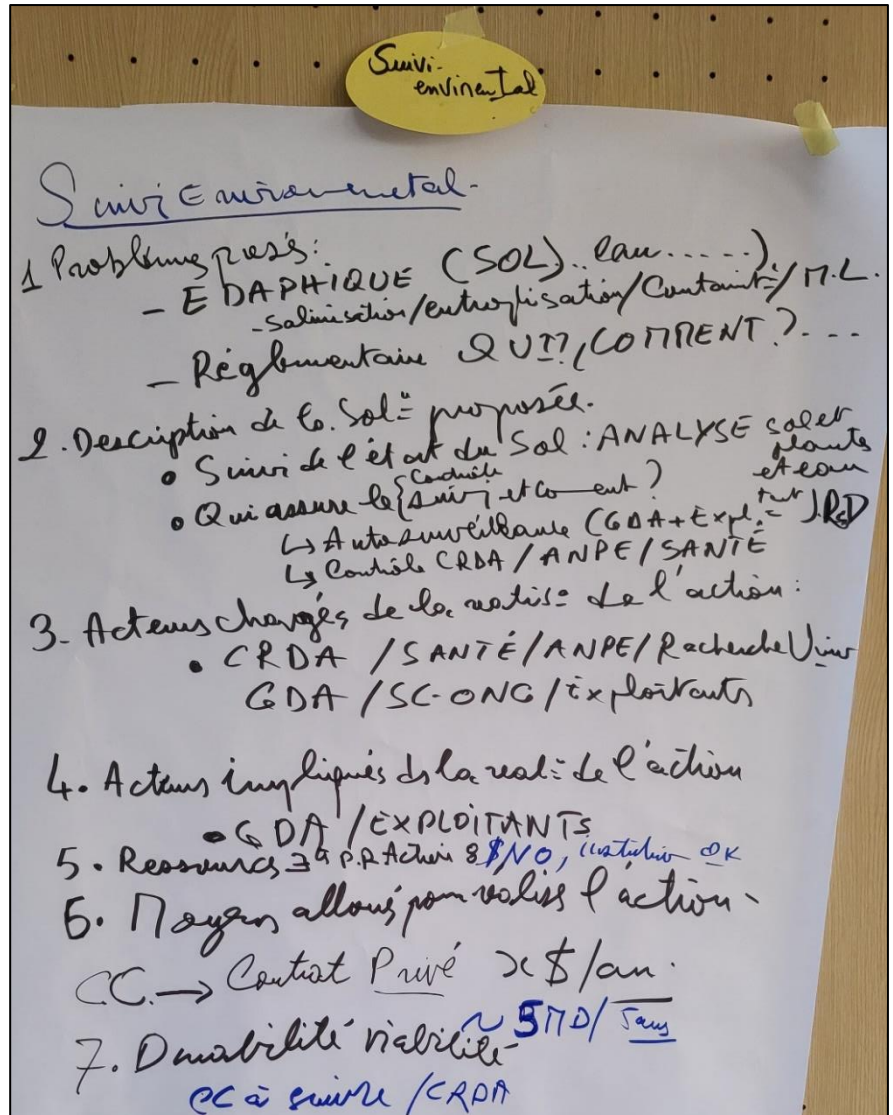 Suivi-
environental
Suivi Environemental-
1 Problèmes posés:
- EDAPHIQUE (SOL).. eau.....).
-salinisation/eutrophisation/Contamint=/M.L.
- Réglementaire QUI??, COMMENT?...
2. Description de la Sol= proposée.
• Suivi de l'état du Sol: ANALYSE sol et plantes et eau
• Qui assure le {Contrôle suivi} et coment?
↳ Autosurveillance (GDA+Expl.=
↳ Contrôle CRDA/ANPE/SANTÉ
3- Acteurs chargés de la réalis= de l'action:
• CRDA /SANTÉ/ANPE/Recherche Univ
GDA/SC-ONG/Exploitants
4. Acteurs impliqués ds la real= de l'action
•GDA /EXPLOITANTS
5. Ressources P.R Action 8 $/NO, OK
6. Moyens alloués pour réaliser l'action-
CC. → Contrat Privé x $/an.
~ 5MD/5ans
7. Durabilité viabilité
CC à suivre /CRDA